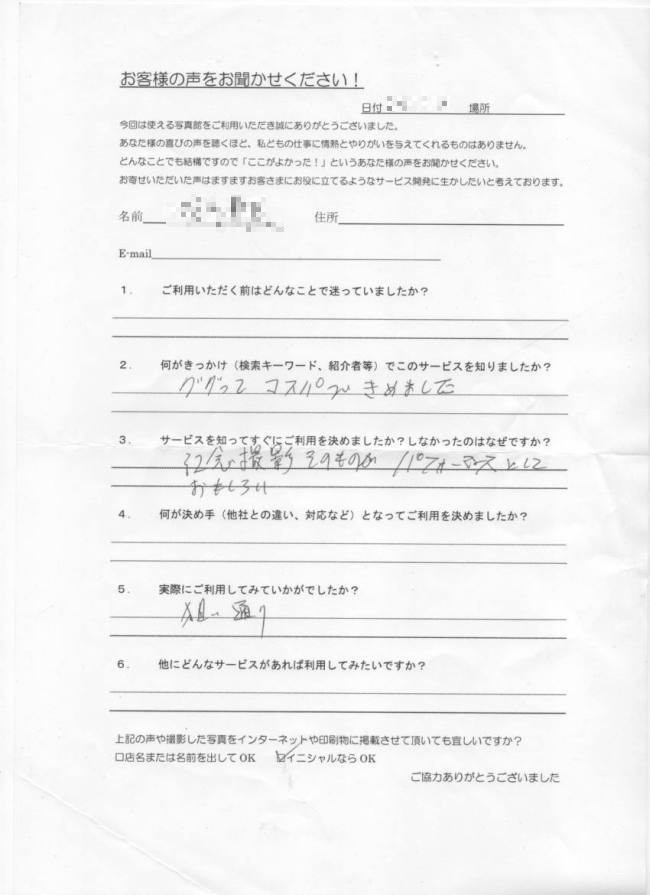 お客様の声をお聞かせください！
日付 場所
今回は使える写真館をご利用いただき誠にありがとうございました。
あなた様の喜びの声を聴くほど、私どもの仕事に情熱とやりがいを与えてくれるものはありません。
どんなことでも結構ですので「ここがよかった！」というあなた様の声をお聞かせください。
お寄せいただいた声はますますお客さまにお役に立てるようなサービス開発に生かしたいと考えております。
名前 住所
E-mail
1． ご利用いただく前はどんなことで迷っていましたか？
2． 何がきっかけ（検索キーワード、紹介者等）でこのサービスを知りましたか？
ググって コスパで きめました
3． サービスを知ってすぐにご利用を決めましたか？しなかったのはなぜですか？
記念撮影そのものが パフォーマンスとして
おもしろい
4． 何が決め手（他社との違い、対応など）となってご利用を決めましたか？
5． 実際にご利用してみていかがでしたか？
狙い通り
6． 他にどんなサービスがあれば利用してみたいですか？
上記の声や撮影した写真をインターネットや印刷物に掲載させて頂いても宜しいですか？
□店名または名前を出して OK ☑イニシャルなら OK
ご協力ありがとうございました